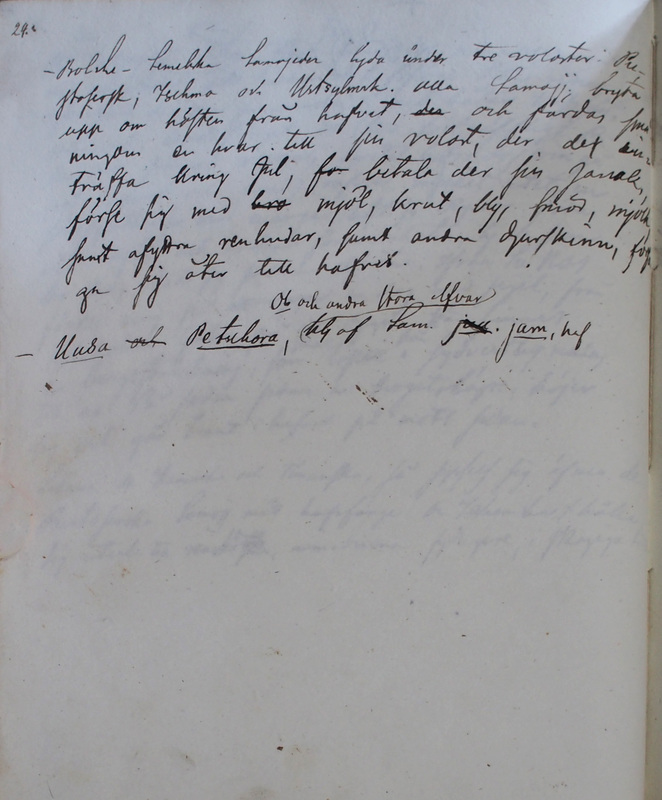 29.
– Bolshe-Semelska Samojeder lyda under tre voloster: Pu-
stosersk, Ischma och Ustsylmsk. Alla Samoj. bryta
upp om hösten från hafvet, och färdas
ningom en hvar till sin volost, der det in-
träffa kring Jul, för betala der sin Jasak,
förse sig med mjöl, krut, bly, smör,
samt afyttra renhudar, samt andra djurskinn,
ga sig åter till hafvet.
Ob och andra stora elfvar
– Uusa och Petschora, af Sam. jam,